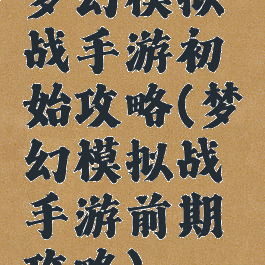 梦幻模拟
战手游初
始攻略(梦
幻模拟战
手游前期
攻略)